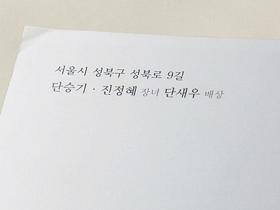 서울시 성북구 성북로 9길
단승기 · 진정혜 장녀 단새우 배상